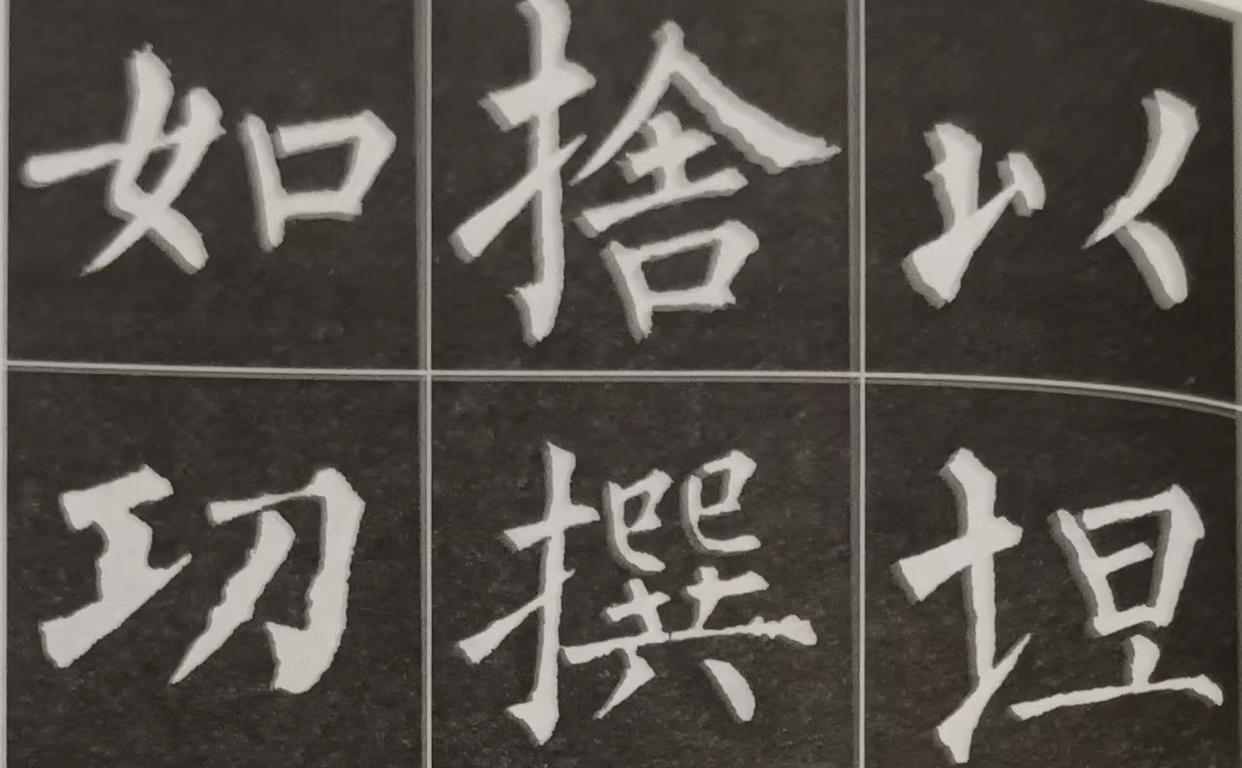 以坦
捨撰
如功